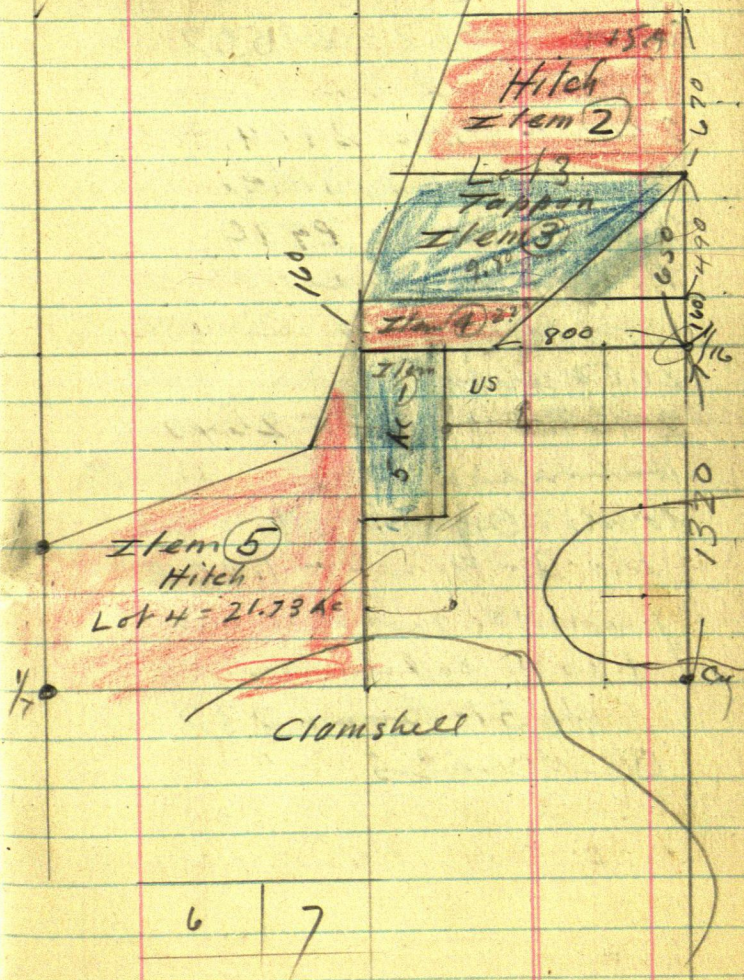 15A
Hitch
Item 2
620
Lot 3
Tappan
Item 3
9.80
650
490
160
160
Item 4
800
16
Item
1
5 Ac
US
1320
Item 5
Hitch
Lot 4 = 21.73 Ac
Clamshell
6 7